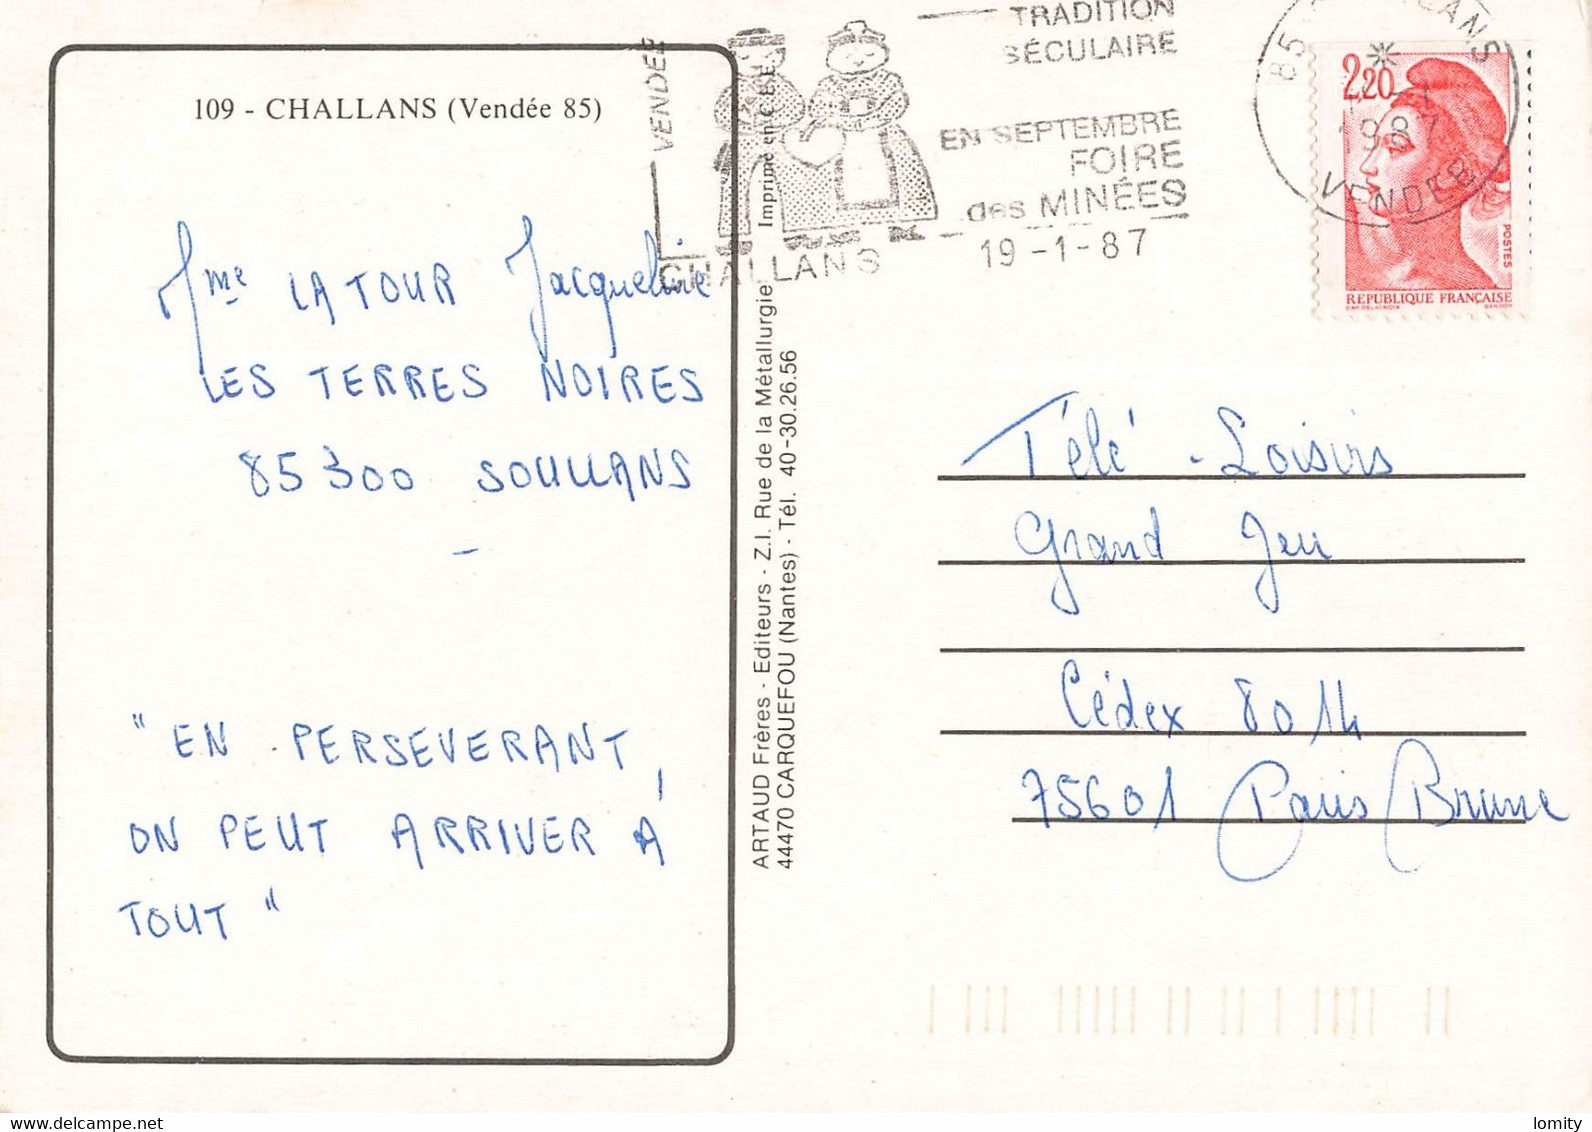 109 - CHALLANS (Vendée 85)
Mme LATOUR Jacqueline
LES TERRES NOIRES
85300 SOULLANS
"EN PERSEVERANT,
ON PEUT ARRIVER À
TOUT"
VENDÉE
CHALLANS
TRADITION
SÉCULAIRE
EN SEPTEMBRE
FOIRE
des MINÉES
19-1-87
Imprimé en C.E.E.
ARTAUD Frères - Editeurs - Z.I. Rue de la Métallurgie
44470 CARQUEFOU (Nantes) - Tél. 40-30.26.56
85
1987
VENDEE
2,20
POSTES
REPUBLIQUE FRANÇAISE
Télé-Loisirs
Grand Jeu
Cédex 8014
75601 Paris Brune
lomity